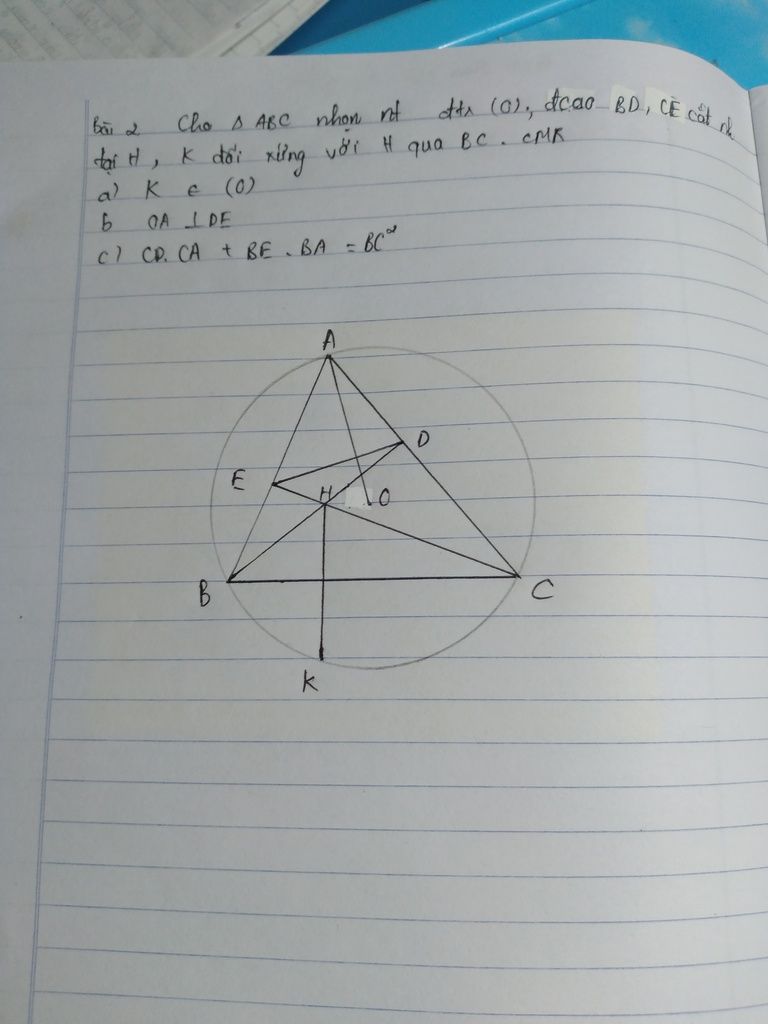 Bài 2 Cho Δ ABC nhọn nt đtr (O), đcao BD, CE cắt nh
tại H, K đối xứng với H qua BC. CMR
a) K ∈ (O)
b OA ⊥ DE
c) CD. CA + BE. BA = BC²
A
D
E
H
O
B
C
K